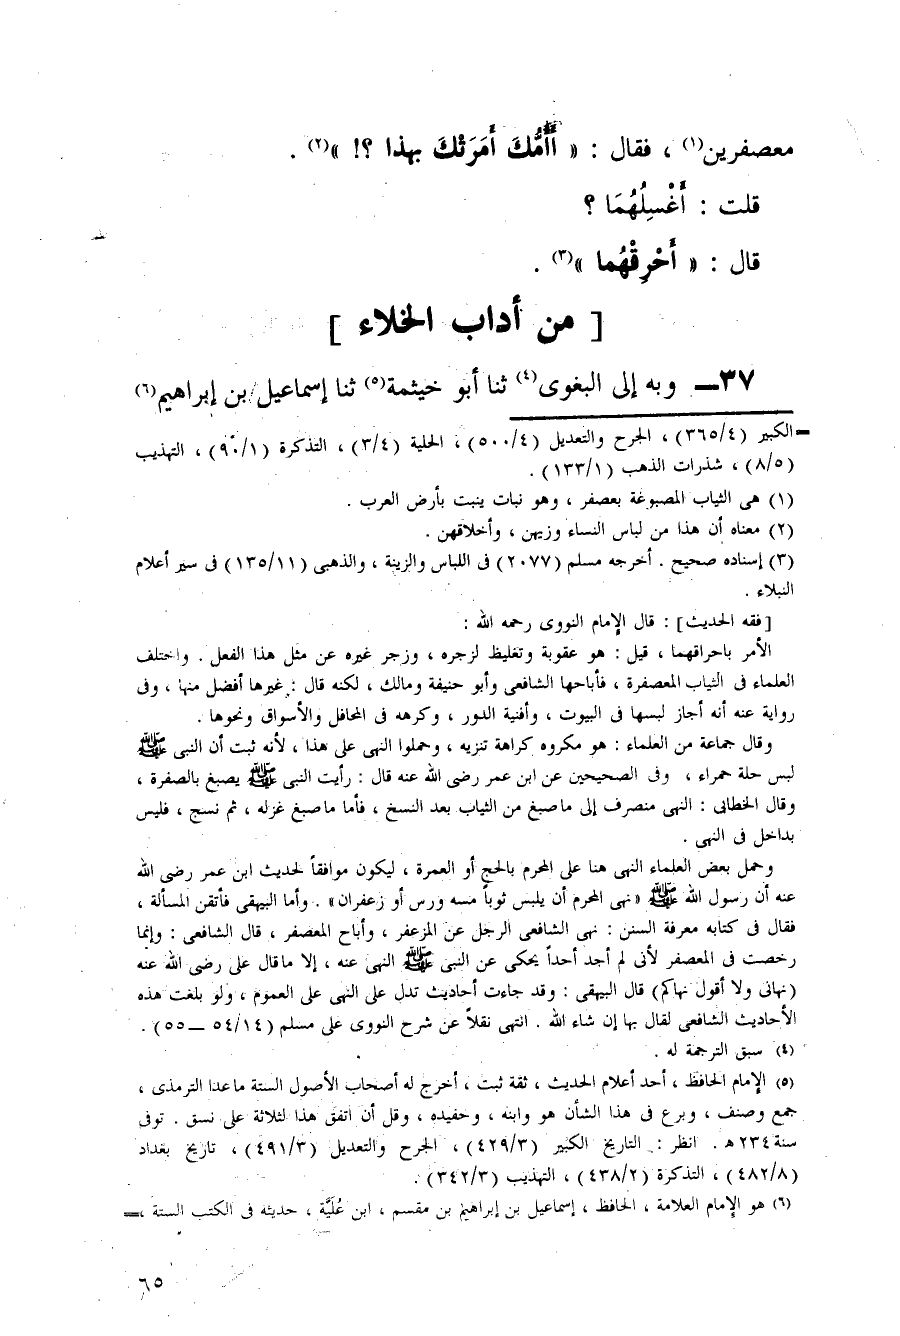 معصفرين(١) ، فقال : « أَأُمُّكَ أَمَرَتْكَ بهذا ؟! »(٢) .
قلت : أَغْسِلُهُمَا ؟
قال : « أَحْرِقْهُما »(٣) .
[ من أداب الخلاء ]
٣٧ــ وبه إلى البغوى(٤) ثنا أبو خيثمة(٥) ثنا إسماعيل بن إبراهيم(٦)
= الكبير (٣٦٥/٤) ، الجرح والتعديل (٥٠٠/٤) ، الحلية (٣/٤) ، التذكرة (٩٠/١) ، التهذيب
(٨/٥) ، شذرات الذهب (١٣٣/١) .
(١) هى الثياب المصبوغة بعصفر ، وهو نبات ينبت بأرض العرب .
(٢) معناه أن هذا من لباس النساء وزيهن ، وأخلاقهن .
(٣) إسناده صحيح . أخرجه مسلم (٢٠٧٧) فى اللباس والزينة ، والذهبى (١٣٥/١١) فى سير أعلام
النبلاء .
[فقه الحديث] : قال الإمام النووى رحمه الله :
الأمر باحراقهما ، قيل : هو عقوبة وتغليظ لزجره ، وزجر غيره عن مثل هذا الفعل . واختلف
العلماء فى الثياب المعصفرة ، فأباحها الشافعى وأبو حنيفة ومالك ، لكنه قال : غيرها أفضل منها ، وفى
رواية عنه أنه أجاز لبسها فى البيوت ، وأفنية الدور ، وكرهه فى المحافل والأسواق ونحوها .
وقال جماعة من العلماء : هو مكروه كراهة تنزيه ، وحملوا النهى على هذا ، لأنه ثبت أن النبى ﷺ
لبس حلة حمراء ، وفى الصحيحين عن ابن عمر رضى الله عنه قال : رأيت النبى ﷺ يصبغ بالصفرة ،
وقال الخطابى : النهى منصرف إلى ماصبغ من الثياب بعد النسخ ، فأما ماصبغ غزله ، ثم نسج ، فليس
بداخل فى النهى .
وحمل بعض العلماء النهى هنا على المحرم بالحج أو العمرة ، ليكون موافقاً لحديث ابن عمر رضى الله
عنه أن رسول الله ﷺ «نهى المحرم أن يلبس ثوباً مسه ورس أو زعفران» . وأما البيهقى فأتقن المسألة ،
فقال فى كتابه معرفة السنن : نهى الشافعى الرجل عن المزعفر ، وأباح المعصفر ، قال الشافعى : وإنما
رخصت فى المعصفر لأنى لم أجد أحداً يحكى عن النبى ﷺ النهى عنه ، إلا ماقال على رضى الله عنه
(نهانى ولا أقول نهاكم) قال البيهقى : وقد جاءت أحاديث تدل على النهى على العموم ، ولو بلغت هذه
الأحاديث الشافعى لقال بها إن شاء الله . انتهى نقلاً عن شرح النووى على مسلم (٥٤/١٤ ــ ٥٥) .
(٤) سبق الترجمة له .
(٥) الإمام الحافظ ، أحد أعلام الحديث ، ثقة ثبت ، أخرج له أصحاب الأصول الستة ماعدا الترمذى ،
جمع وصنف ، وبرع فى هذا الشأن هو وابنه ، وحفيده ، وقل أن اتفق هذا لثلاثة على نسق . توفى
سنة ٢٣٤ هـ . انظر : التاريخ الكبير (٤٢٩/٣) ، الجرح والتعديل (٤٩١/٣) ، تاريخ بغداد
(٤٨٢/٨) ، التذكرة (٤٣٨/٢) ، التهذيب (٣٤٢/٣) .
(٦) هو الإمام العلامة ، الحافظ ، إسماعيل بن إبراهيم بن مقسم ، ابن عُلَيَّة ، حديثه فى الكتب الستة ، =
٦٥